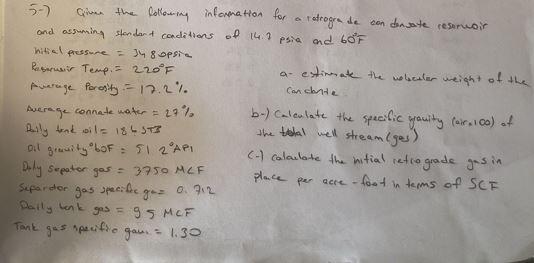 5-) Given the following information for a retrograde condensate reservoir
and assuming standard conditions of 14.7 psia and 60°F
initial pressure = 3480psia
Reservoir Temp. = 220°F
Average Porosity = 17.2%
Average connate water = 27%
Daily tank oil = 184 STB
Oil gravity 60F = 51.2 °API
Daily Separator gas = 3750 MCF
Separator gas specific gra = 0.712
Daily tank gas = 95 MCF
Tank gas specific grav. = 1.30
a- estimate the molecular weight of the
condensate.
b-) Calculate the specific gravity (air=1.00) of
the well stream (gas)
c-) calculate the initial retrograde gas in
place per acre-foot in terms of SCF